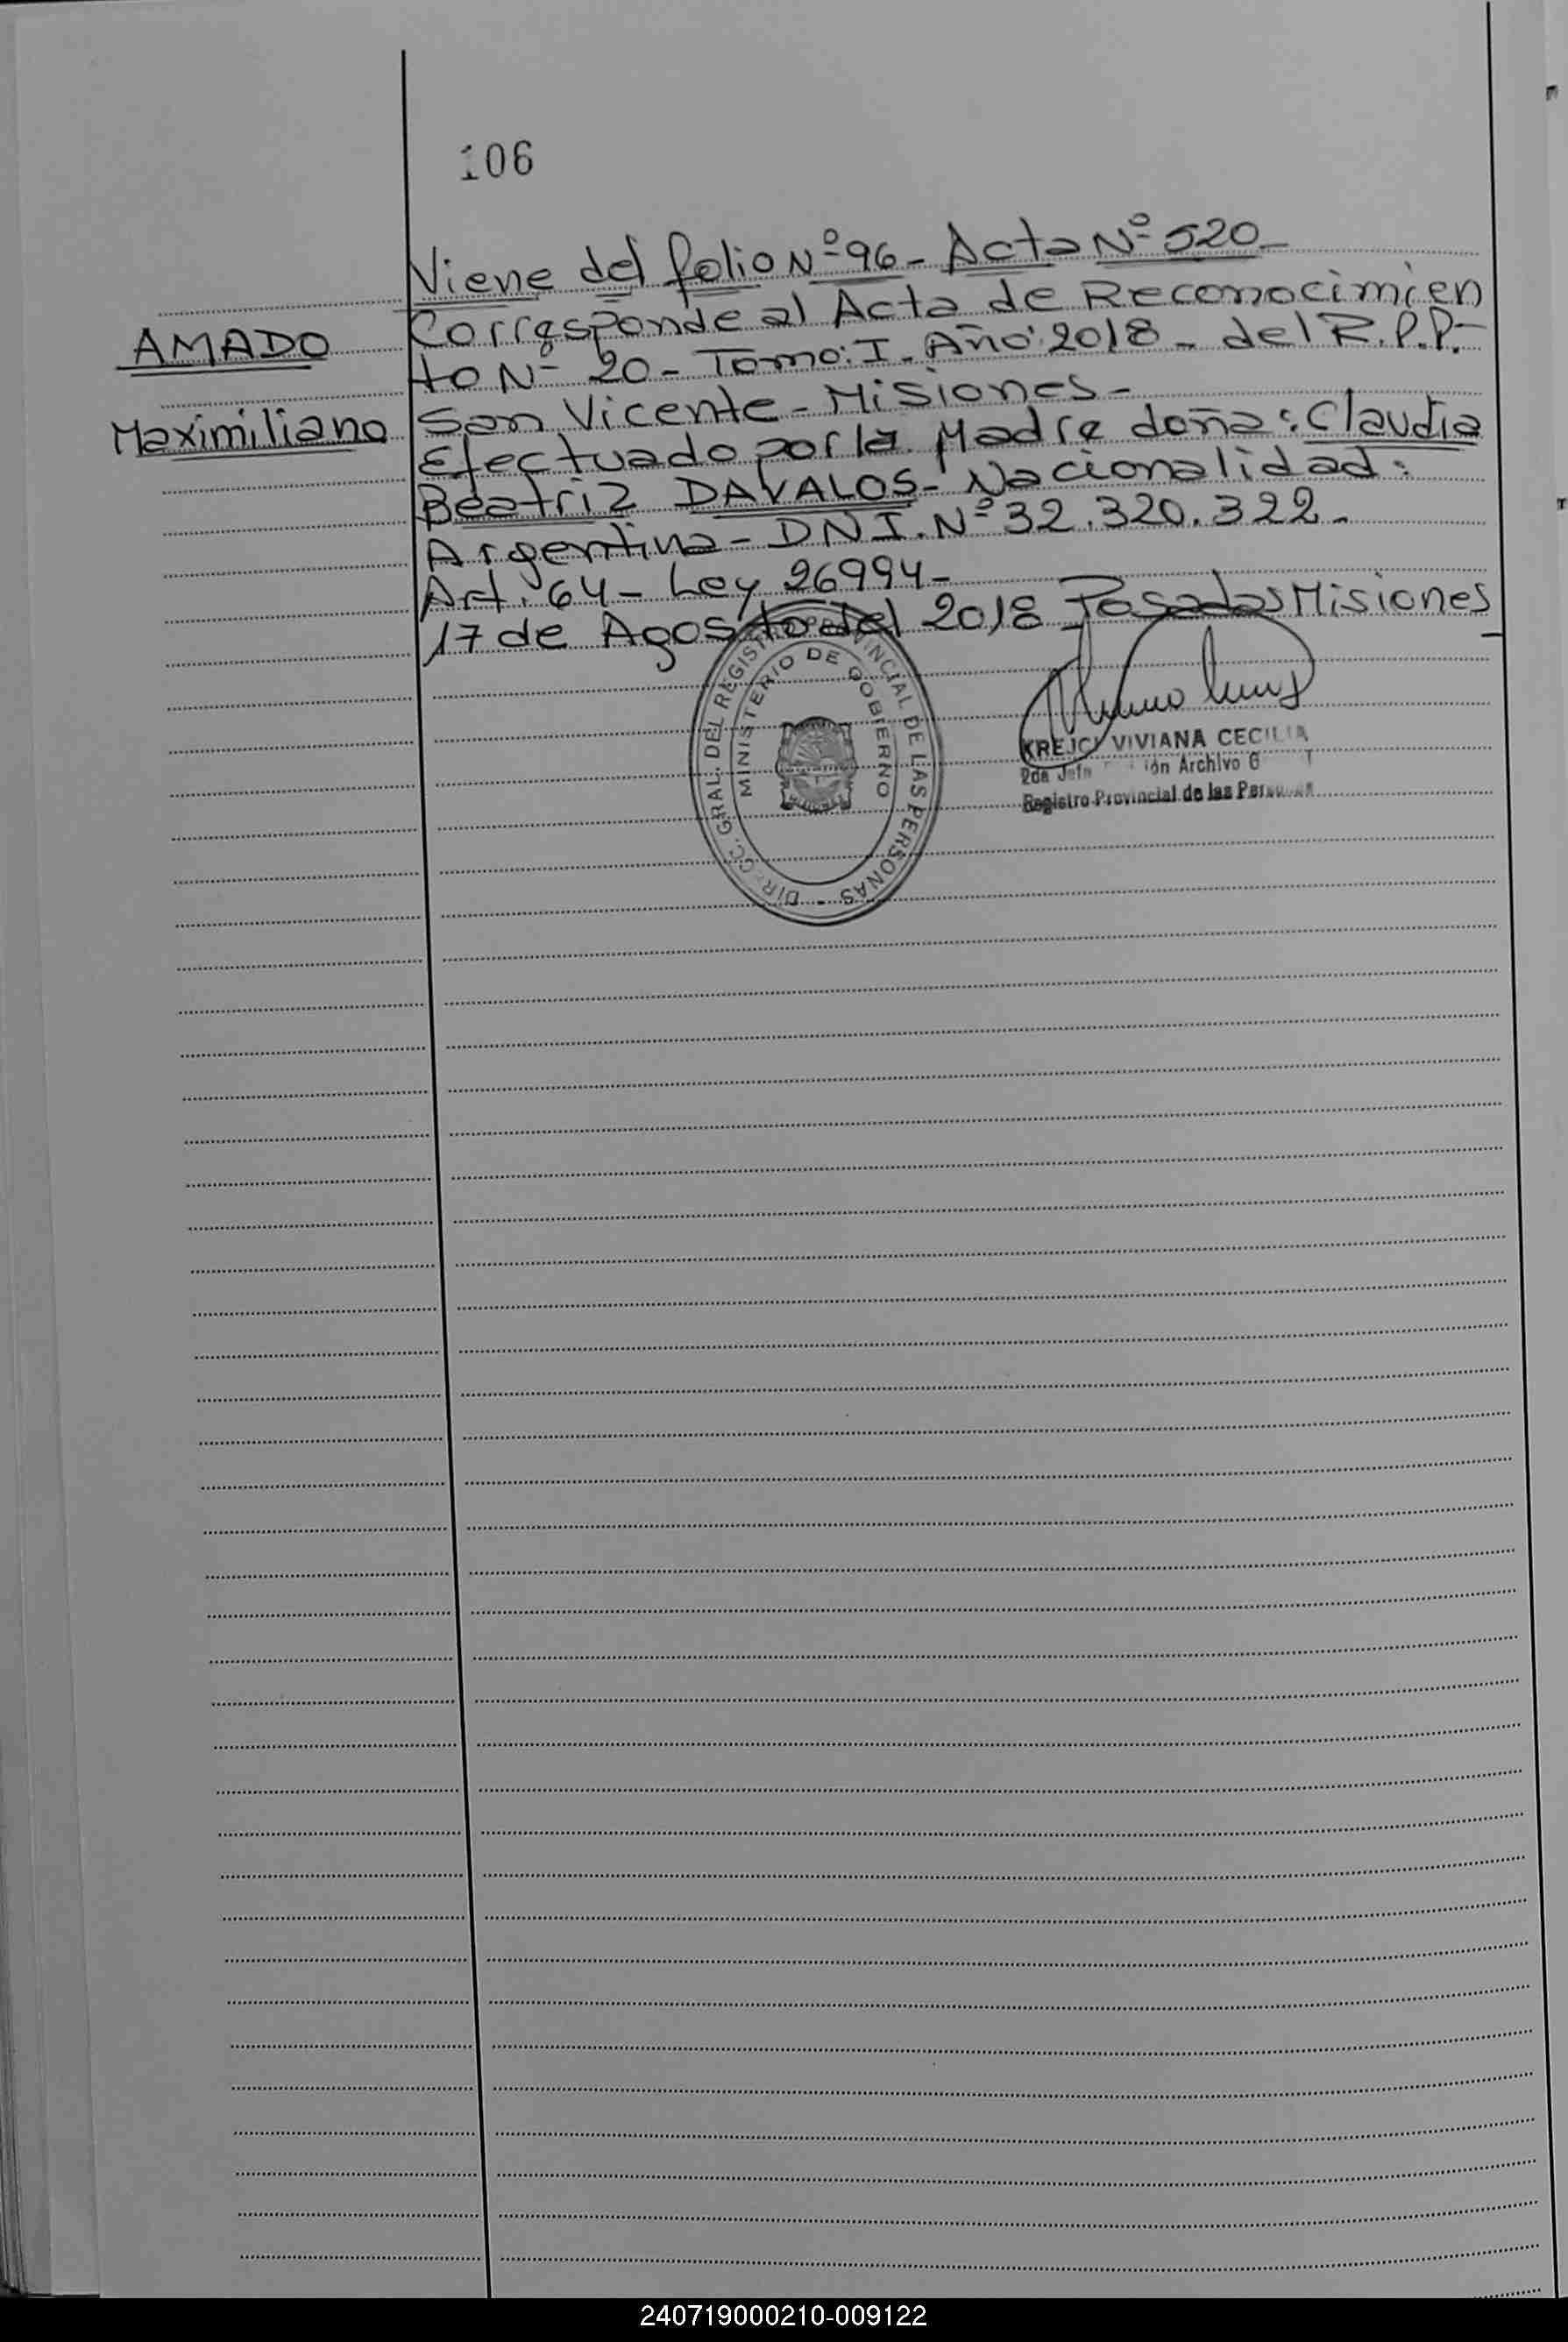 106
Viene del folio Nº 96 - Acta Nº 520 -
Corresponde al Acta de Reconocimien
AMADO
to Nº 20 - Tomo: I - Año: 2018 - del R.P.P. -
Maximiliano
San Vicente - Misiones -
Efectuado por la Madre doña: Claudia
Beatriz DAVALOS - Nacionalidad:
Argentina - DNI. Nº 32.320.322 -
Art. 64 - Ley 26994 -
17 de Agosto del 2018 Posadas Misiones -
DIRECC. GRAL. DEL REGISTRO PROVINCIAL DE LAS PERSONAS -
MINISTERIO DE GOBIERNO
KREJCI VIVIANA CECILIA
2da Jefa Archivo
Registro Provincial de las
240719000210-009122